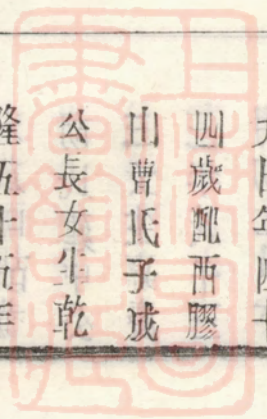 光四年
四歲配西膠
山曹氏子成
公長女生乾
隆五十五年